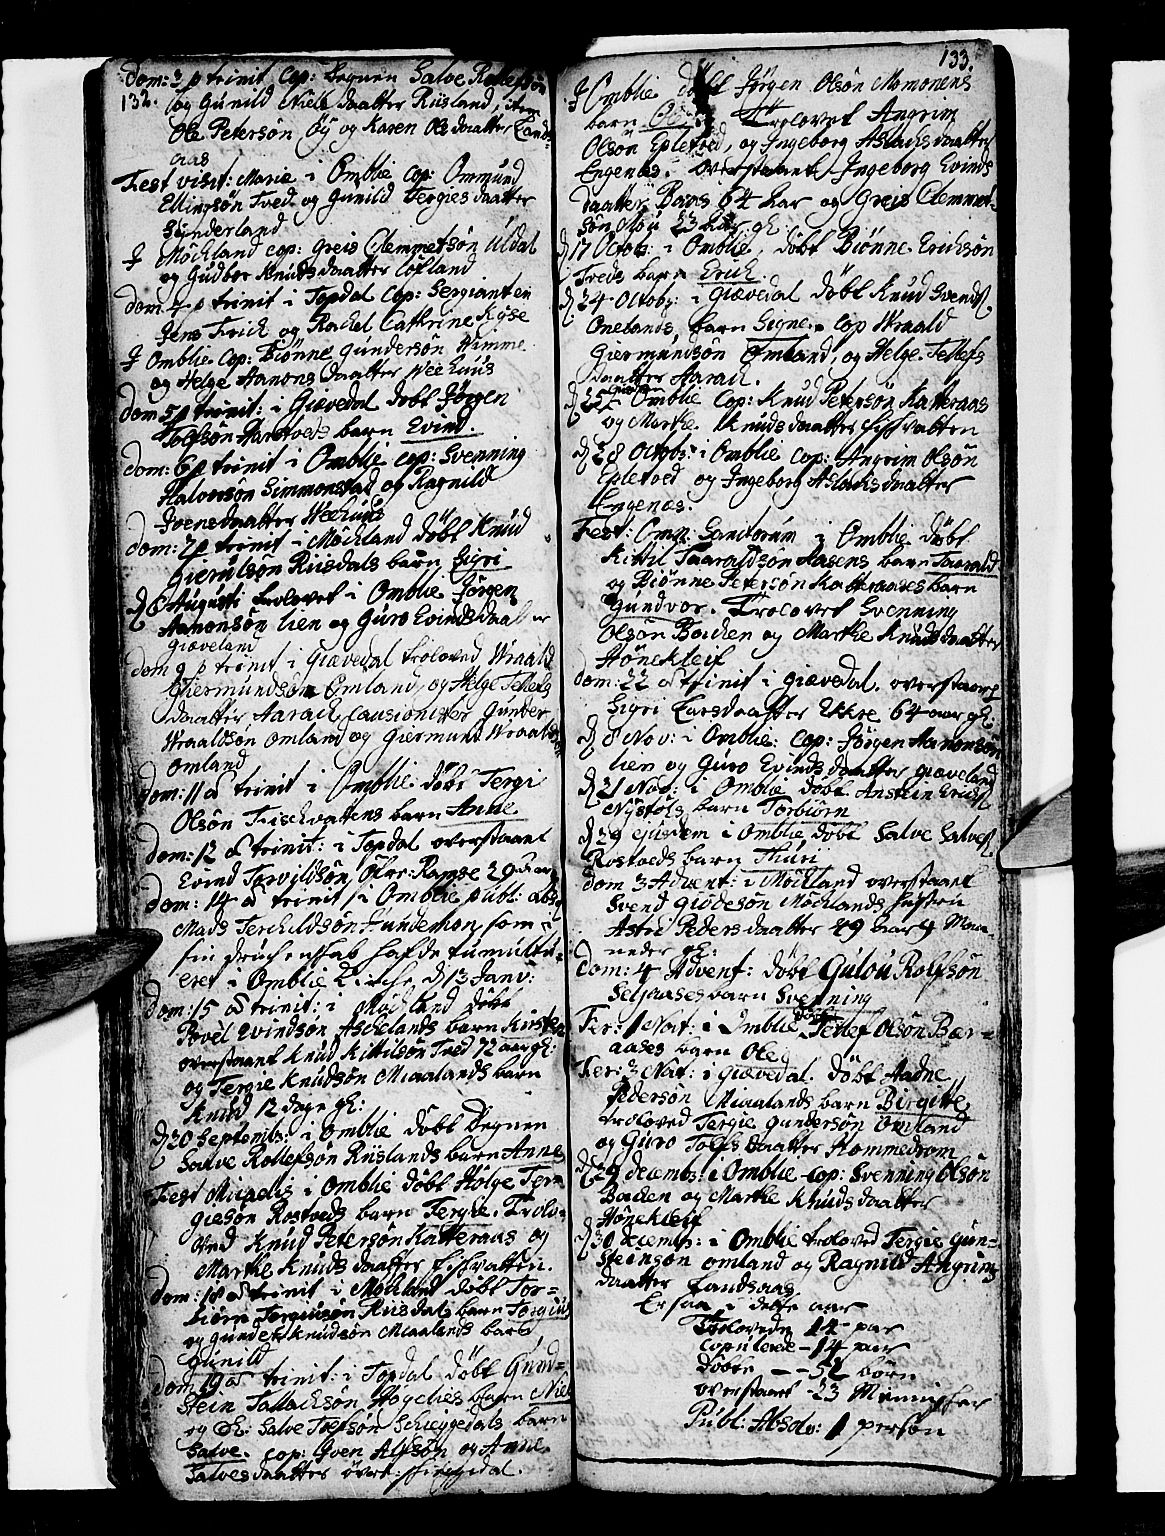 dom: 3 p trinit cop: Degnen Salve Rollefsön
132. og Gunild Niels daatter Riisland, item
Ole Petersön Öÿ og Karen Ole daatter Lands-
aas
Fest visit: Mariæ i Omblie cop: Ommund
Ellingsön Tved og Gunild Tergies daatter
Sunderland
Möckland cop: Greis Clemmetsön Uldal
og Gudbor Knuds daatter Löfland
dom 4 p trinit i Topdal cop: Sergianten
Jens Frich og Rachel Cathrine Kyse
Omblie cop: Biönne Gundersön Himme
og Helge Aanons daatter Weehuus
dom: 5 p trinit: i Giævedal döbt Jörgen
Tolfsön Harstveds barn Evind.
dom: 6 p trinit i Omblie cop: Svenning
Halvorsön Simmonstad og Ragnild
Jvens daatter Weehuus
dom: 7 p trinit i Möckland döbt Knud
Gierulsön Riisdals barn Sigri
d 8 Augusti trolovet i Omblie Jörgen
Aanonsön Lien og Guro Evinds daatter
Giæveland
dom 9 p trinit i Giævedal troloved Wraald
Giermundsön Omland, og Helge Tellefs
daatter Aarach Cautionister Gunder
Wraaldsön Omland og Giermund Wraalsön
Omland
dom: 11 a trinit i Omblie döbt Tergi
Olsön Fischvattens barn Anne
dom: 12 a trinit: i Topdal overstaaet
Evind Torvildsön Ramse 29 aar
dom: 14 a trinit i Omblie publ: abs:
Mads Terchildsön Hundemon, som i
sin druchenskab hafde tumultu-
eret i Omblie Kirche d 13 Janv:
dom: 15 a trinit: i Möckland döbt
Povel Evindsön Aschlands barn Kirsten
overstaaet Knud Kittilsön Tved 72 aar gl:
og Tergie Knudsön Miaalands barn
Knud 12 dage gl:
d 30 Septembr: i Omblie döbt Degnen
Salve Rollefsön Riislands barn Anne
Fest Michaelis i Omblie döbt Holge Ter-
giesön Rostveds barn Tergie. Trolo-
ved Knud Petersön Katteraas og
Marthe Knuds daatter Fishvatten.
dom: 18 a trinit i Möckland döbt Tor-
biörn Torgiusön Riisdals barn Torgius
og Gunder Knudsön Miaalands barn
Gunild
dom 19 a trinit: i Topdal döbt Gund-
stein Tallachsön Högelies barn Niels
og Salve Tolfsön Schieggedals barn
Salve. cop: Gven Alfsön og Anne
Salves daatter över-schieggedal.
133.
Omblie döbt Jörgen Olsön Momonens
barn Ole. Trolovet Angrim
Olsön Epletved, og Ingeborg Aslachs daatter
Engenes. Overstaaet Ingeborg Evinds
daatter Baas 64 aar og Greis Clemmet-
sön Moü 23 aar gl:
d 17 Octob: i Omblie, döbt Biönne Erichsön
Tveds barn Erich.
d 24 Octobr: i Giævedal döbt Knud Svends
Onelands barn Signe. cop Wraald
Giermundsön Omland, og Helge Tellefs
daatter Aarach.
d 25 Omblie cop: Knud Petersön Katteraas
og Marthe Knuds daatter Fishvatten
d 28 Octobr: i Omblie cop: Angrim Olsön
Epletved og Ingeborg Aslachs daatter
Engenes.
Fest: Omn: Sanctorum i Omblie döbt
Kittil Taaraldsön Aasens barn Taarald
og Biönne Petersön Katteraases barn
Gundvor. Trolovet Svenning
Olsön Baaden og Marthe Knuds daatter
Hönekleif
dom: 22 a trinit i Giævedal. overstaaet
Sigri Larsdaatter Ekre 64 aar gl:
d 8 Nov: i Omblie: cop: Jörgen Aanonsön
Lien og Guro Evinds daatter Giæveland
d 21 Nov: i Omblie döbt Anstein Erichs
Nÿstöls barn Torbiörn
d 29 ejusdem i Omblie döbt Salve Salves
Rostveds barn Thuri
dom 3 Advent: i Möckland overstaaet
Svend Giödesön Möcklands hustru
Astri Peders daatter 49 aar 9 Maa-
neder gl:
dom: 4 Advent: döbt Gulou Rolfsön
Seljaases barn Svenning
Fer: 1 Nat: i Omblie döbt Tellef Olsön Bær-
aases barn Ole
Fer: 3 Nat: i Giævedal. döbt Aadne
Pedersön Miaalands barn Birgitte
troloved Tergie Gundersön Omland
og Guro Tolfs daatter Hommedrom
d 29 decemb: i Omblie cop: Svenning Olsön
Baaden og Marthe Knuds daatter
Hönekleif
d 30 decemb: i Omblie troloved Tergie Gun-
steinsön Omland og Ragnild Angrims
daatter Landsaas
Er saa i dette aar
Trolovede 14 par
Copulerede - 14 par
Döbte - - 52 börn
overstaaet - 23 Mennisker
Publ: Absolv: 1 person